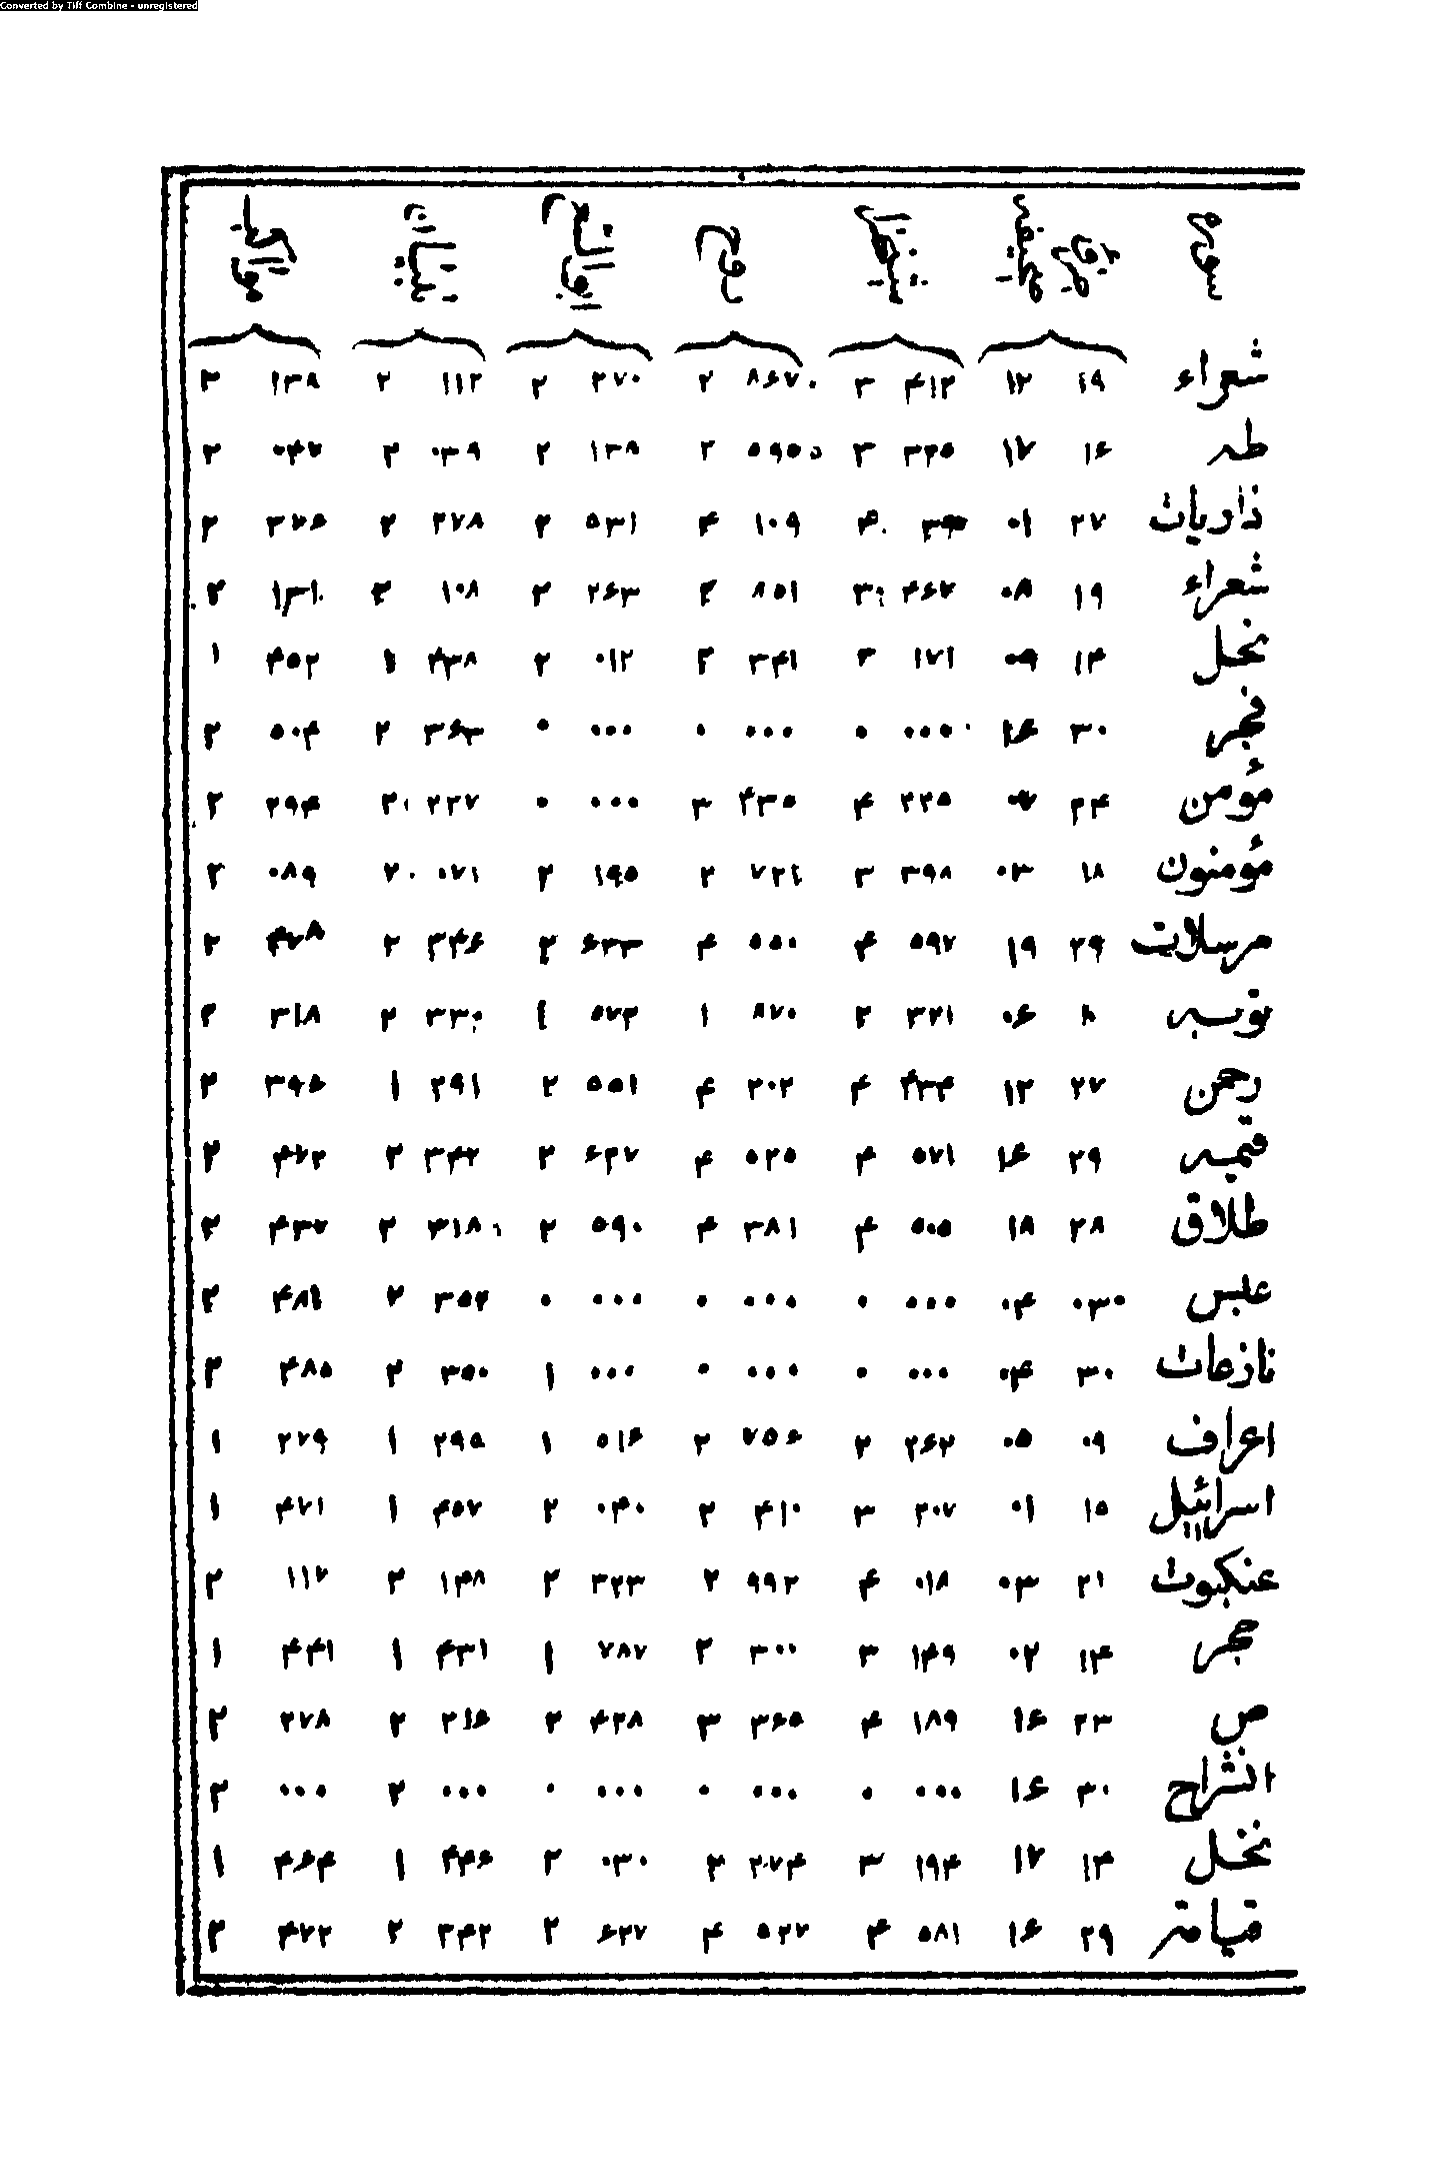 Converted by Tiff Combine - unregistered
سوره
شعراء ۱۹ ۱۲ ۴۱۲ ۳ ۸۶۷۰ ۲ ۲۷۰ ۲ ۱۱۲ ۲ ۱۳۸ ۳
طه ۱۶ ۱۷ ۳۳۵ ۳ ۵۹۵ ۲ ۱۳۹ ۲ ۰۳۹ ۲ ۰۴۷ ۲
ذاریات ۲۷ ۰۱ ۴ ۱۰۹ ۴ ۵۳۱ ۲ ۲۷۸ ۲ ۳۷۶ ۲
شعراء ۱۹ ۰۸ ۴۶۷ ۳ ۸۵۱ ۲ ۲۶۳ ۲ ۱۰۸ ۲ ۱۳۱ ۲
نحل ۱۴ ۰۹ ۱۷۱ ۳ ۳۴۱ ۲ ۰۱۲ ۲ ۴۳۸ ۱ ۴۵۲ ۱
فجر ۳۰ ۱۶ ۰۰۰ ۰ ۰۰۰ ۰ ۰۰۰ ۰ ۳۶۳ ۲ ۵۰۴ ۲
مؤمن ۲۴ ۲۲۵ ۴ ۴۳۵ ۳ ۰۰۰ ۰ ۲۲۷ ۲ ۲۹۴ ۲
مؤمنون ۱۸ ۰۳ ۳۹۸ ۳ ۷۲۱ ۲ ۱۹۵ ۲ ۰۷۱ ۲ ۰۸۹ ۲
مرسلات ۲۹ ۱۹ ۵۹۷ ۴ ۵۵۰ ۴ ۶۳۳ ۲ ۳۴۶ ۲ ۴۷۸ ۲
توبه ۰۶ ۳۲۱ ۲ ۸۷۰ ۱ ۵۷۲ ۱ ۳۳۰ ۲ ۳۱۸ ۲
رحمن ۲۷ ۱۲ ۴۳۴ ۴ ۲۰۲ ۴ ۵۵۱ ۲ ۲۹۱ ۱ ۳۹۵ ۲
قیمه ۲۹ ۱۶ ۵۷۱ ۴ ۵۲۵ ۴ ۶۲۷ ۲ ۳۴۲ ۲ ۴۷۲ ۲
طلاق ۲۸ ۱۸ ۵۰۵ ۴ ۳۸۱ ۴ ۵۹۰ ۲ ۳۱۸ ۲ ۴۳۷ ۲
عبس ۰۳۰ ۰۴ ۰۰۰ ۰ ۰۰۰ ۰ ۰۰۰ ۰ ۳۵۲ ۲ ۴۸۱ ۲
نازعات ۳۰ ۰۴ ۰۰۰ ۰ ۰۰۰ ۰ ۰۰۰ ۱ ۳۵۰ ۲ ۴۸۵ ۲
اعراف ۰۹ ۰۵ ۲۶۲ ۲ ۷۵۶ ۲ ۵۱۶ ۱ ۲۹۵ ۱ ۲۷۹ ۱
اسرائیل ۱۵ ۰۱ ۲۰۷ ۳ ۴۱۰ ۲ ۰۴۰ ۲ ۴۵۷ ۱ ۴۷۱ ۱
عنکبوت ۲۱ ۰۳ ۰۱۸ ۴ ۹۹۲ ۲ ۳۲۳ ۲ ۱۴۸ ۲ ۱۱۷ ۲
حجر ۱۴ ۰۲ ۱۴۹ ۳ ۳۰۰ ۲ ۷۸۷ ۱ ۴۳۱ ۱ ۴۴۱ ۱
ص ۲۳ ۱۶ ۱۸۹ ۴ ۳۶۵ ۳ ۴۲۸ ۲ ۲۱۶ ۲ ۲۷۸ ۲
انشراح ۳۰ ۱۶ ۰۰۰ ۰ ۰۰۰ ۰ ۰۰۰ ۰ ۰۰۰ ۲ ۰۰۰ ۲
نحل ۱۴ ۱۷ ۱۹۴ ۳ ۲۷۴ ۲ ۰۳۰ ۲ ۴۴۶ ۱ ۴۶۴ ۱
قیامة ۲۹ ۱۶ ۵۸۱ ۴ ۵۲۷ ۴ ۶۲۷ ۲ ۳۴۲ ۲ ۴۷۲ ۲